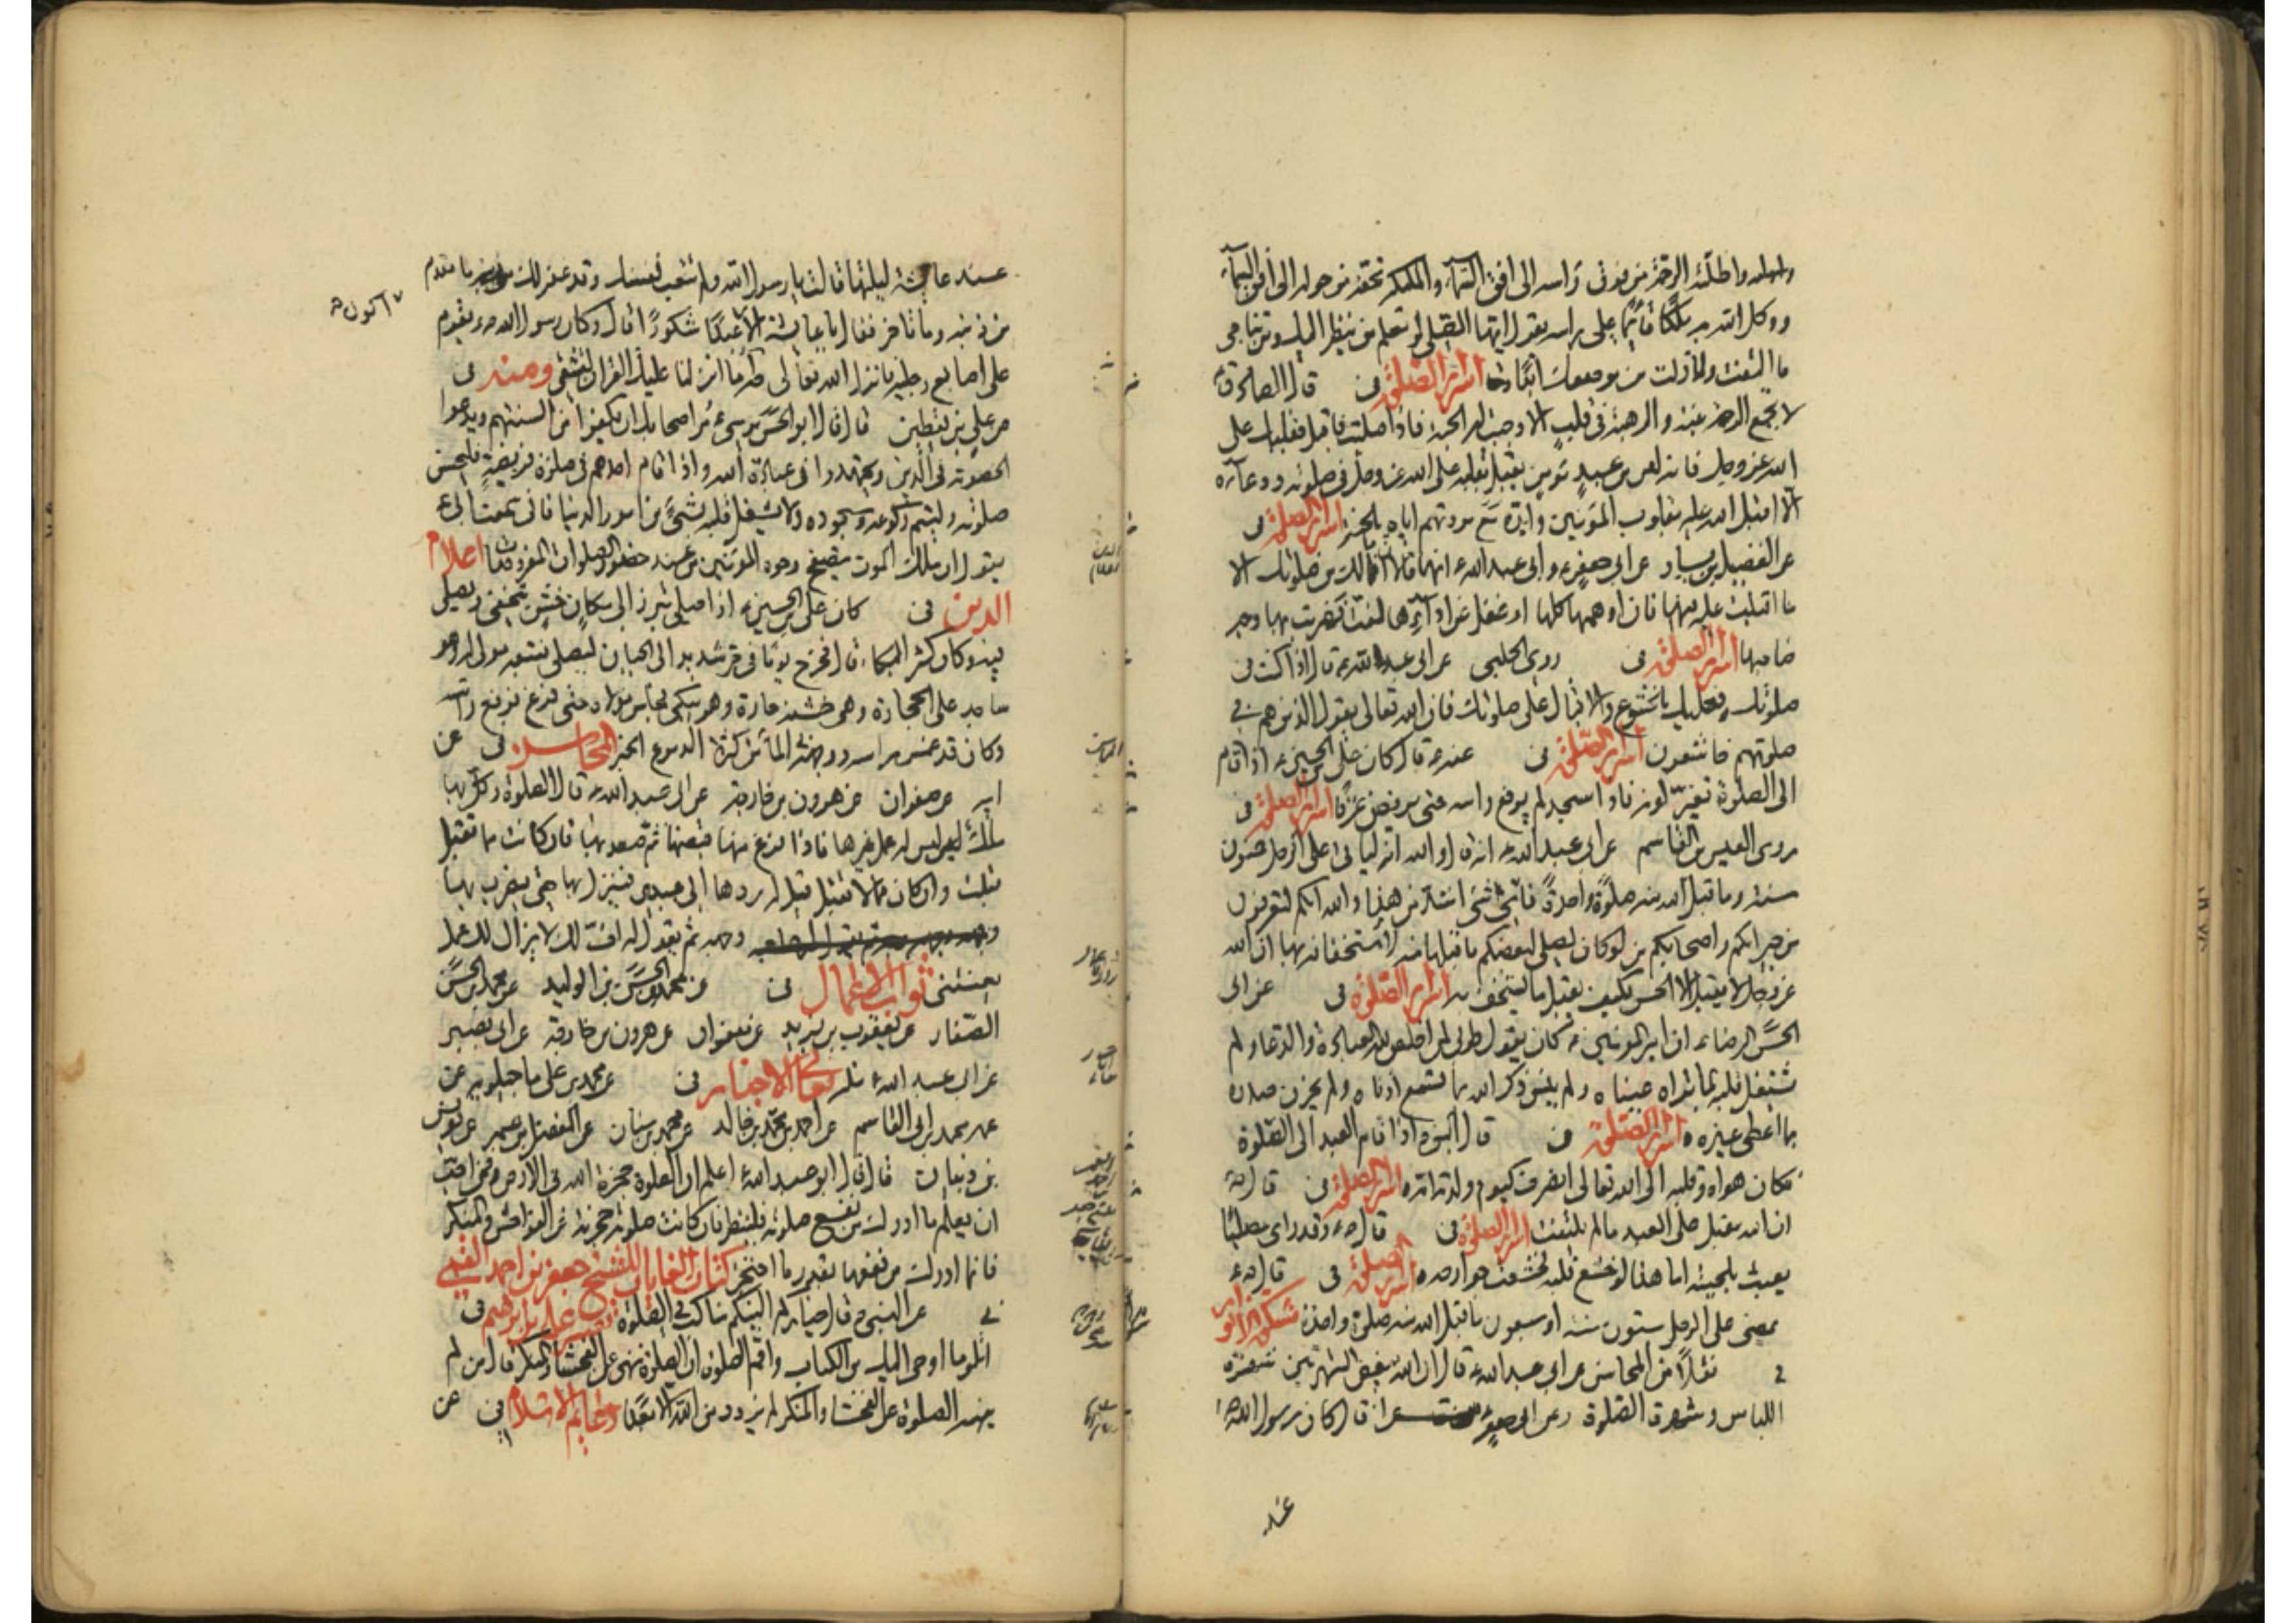 واظلته الرحمة من فوق راسه الى افق السماء والملئكة تحفه من حوله الى افق السماء
ووكل الله به ملكا قائما على راسه يقول ايها المصلي لو تعلم من ينظر اليك ومن تناجى
ما التفت ولا زلت من موضعك ابدا اسرار الصلوة فى قال الصادق ع
لا تجمع الرغبة والرهبة فى قلب الا وجبت له الجنة فاذا صليت فاقبل بقلبك على
الله عز وجل فانه ليس من عبد مؤمن يقبل بقلبه على الله عز وجل فى صلوته ودعائه
الا اقبل الله عليه بقلوب المؤمنين وايده مع مودتهم اياه بالجنة اسرار الصلوة فى
عن الفضيل بن يسار عن ابى جعفر ع وابى عبد الله ع انهما قالا انما لك من صلوتك الا
ما اقبلت عليه منها فان اوهمها كلها او غفل عن ادائها لفت فضربت بها وجه
صاحبها اسرار الصلوة فى روى الحلبى عن ابى عبد الله ع قال اذا كنت فى
صلوتك فعليك بالخشوع والاقبال على صلوتك فان الله تعالى يقول الذين هم فى
صلوتهم خاشعون اسرار الصلوة فى عنه ع قال كان على بن الحسين ع اذا قام
الى الصلوة تغير لونه فاذا سجد لم يرفع راسه حتى يرفض عرقا اسرار الصلوة فى
روى العيص بن القاسم عن ابى عبد الله ع انه قال والله انه لياتى على الرجل خمسون
سنة وما قبل الله منه صلوة واحدة فاى شئ اشد من هذا والله انكم لتعرفون
من جيرانكم واصحابكم من لو كان يصلى لبعضكم ما قبلها منه لاستخفافه بها ان الله
عز وجل لا يقبل الا الحسن فكيف يقبل ما يستخف به اسرار الصلوة فى عن ابى
الحسن الرضا ع ان امير المؤمنين ع كان يقول طوبى لمن اخلص لله العبادة والدعاء ولم
يشتغل قلبه بما تراه عيناه ولم ينس ذكر الله بما تسمع اذناه ولم يحزن صدره
بما اعطى غيره اسرار الصلوة فى قال النبى ص اذا قام العبد الى الصلوة
فكان هواه وقلبه الى الله تعالى انصرف كيوم ولدته امه اسرار الصلوة فى قال ص
ان الله مقبل على العبد ما لم يلتفت اسرار الصلوة فى قال ص وقد راى مصليا
يعبث بلحيته اما هذا لو خشع قلبه لخشعت جوارحه اسرار الصلوة فى قال ع
يمضى على الرجل ستون سنة او سبعون ما قبل الله منه صلوة واحدة مشكوة الانوار
فى نقلا من المحاسن عن ابى عبد الله ع قال ان الله يبغض الشهرتين شهرة
اللباس وشهرة الصلوة وعن ابى جعفر ع قال كان رسول الله ص
عند
عند عايشة ليلتها فقالت يا رسول الله ولم تتعب نفسك وقد غفر لك ما تقدم
من ذنبه وما تاخر فقال يا عايشة الا عبدا شكورا قال وكان رسول الله ص يقوم
الا اكون
على اصابع رجليه فانزل الله تعالى طه ما انزلنا عليك القران لتشقى ومنه فى
عن على بن يقطين قال قال ابو الحسن موسى ع مر اصحابك ان يكفوا من السنتهم ويدعوا
الخصومة فى الدين ويجتهدوا فى عبادة الله واذا قام احدهم فى صلوة فريضة فليحسن
صلوته وليتم ركوعه وسجوده ولا يشغل قلبه بشئ من امور الدنيا فانى سمعت ابى ع
يقول ان ملك الموت يتصفح وجوه المؤمنين من عند حضور الصلوات المفروضات اعلام
الدين فى كان على بن الحسين ع اذا صلى تبرز الى مكان خشن يتخفى ويصلى
فيه وكان كثير البكاء قال فخرج يوما فى حر شديد الى الجبان ليصلى فتبعه مولى له وهو
ساجد على الحجارة وهى خشنة حارة وهو يبكى فجلس مولاه حتى فرغ فرفع راسه
وكان قد غمس راسه ووجهه فى الماء من كثرة الدموع الخبر المحاسن فى عن
ابيه عن صفوان عن هرون بن خارجة عن ابى عبد الله ع قال الصلوة وكل بها
ملك ليس له عمل غيرها فاذا فرغ منها قبضها ثم صعد بها فان كانت مما تقبل
قبلت وان كان مما لا تقبل قيل له ردها الى عبدى فينزل بها حتى يضرب بها
وجهه ثم يقول له اف لك لا يزال لك عمل
يعنينى ثواب الاعمال فى عن محمد بن الحسن بن الوليد عن محمد بن الحسن
الصفار عن يعقوب بن يزيد عن صفوان عن هرون بن خارجة عن ابى بصير
عن ابى عبد الله ع مثله معانى الاخبار فى عن محمد بن على ماجيلويه عن
عمه محمد بن ابى القاسم عن احمد بن محمد بن خالد عن محمد بن سنان عن المفضل بن عمر عن يونس
بن ظبيان قال قال ابو عبد الله ع اعلم ان الصلوة حجزة الله فى الارض فمن احب
ان يعلم ما ادرك من نفع صلوته فلينظر فان كانت صلوته حجزته عن الفواحش والمنكر
فانما ادرك من نفعها بقدر ما احتجز كتاب الغايات للشيخ جعفر بن احمد القمى
فى عن النبى ص قال خياركم الينكم مناكب فى الصلوة تفسير على بن ابراهيم فى
اتل ما اوحى اليك من الكتاب واقم الصلوة ان الصلوة تنهى عن الفحشاء والمنكر قال من لم
ينهه الصلوة عن الفحشاء والمنكر لم يزدد من الله الا بعدا دعائم الاسلام فى عن